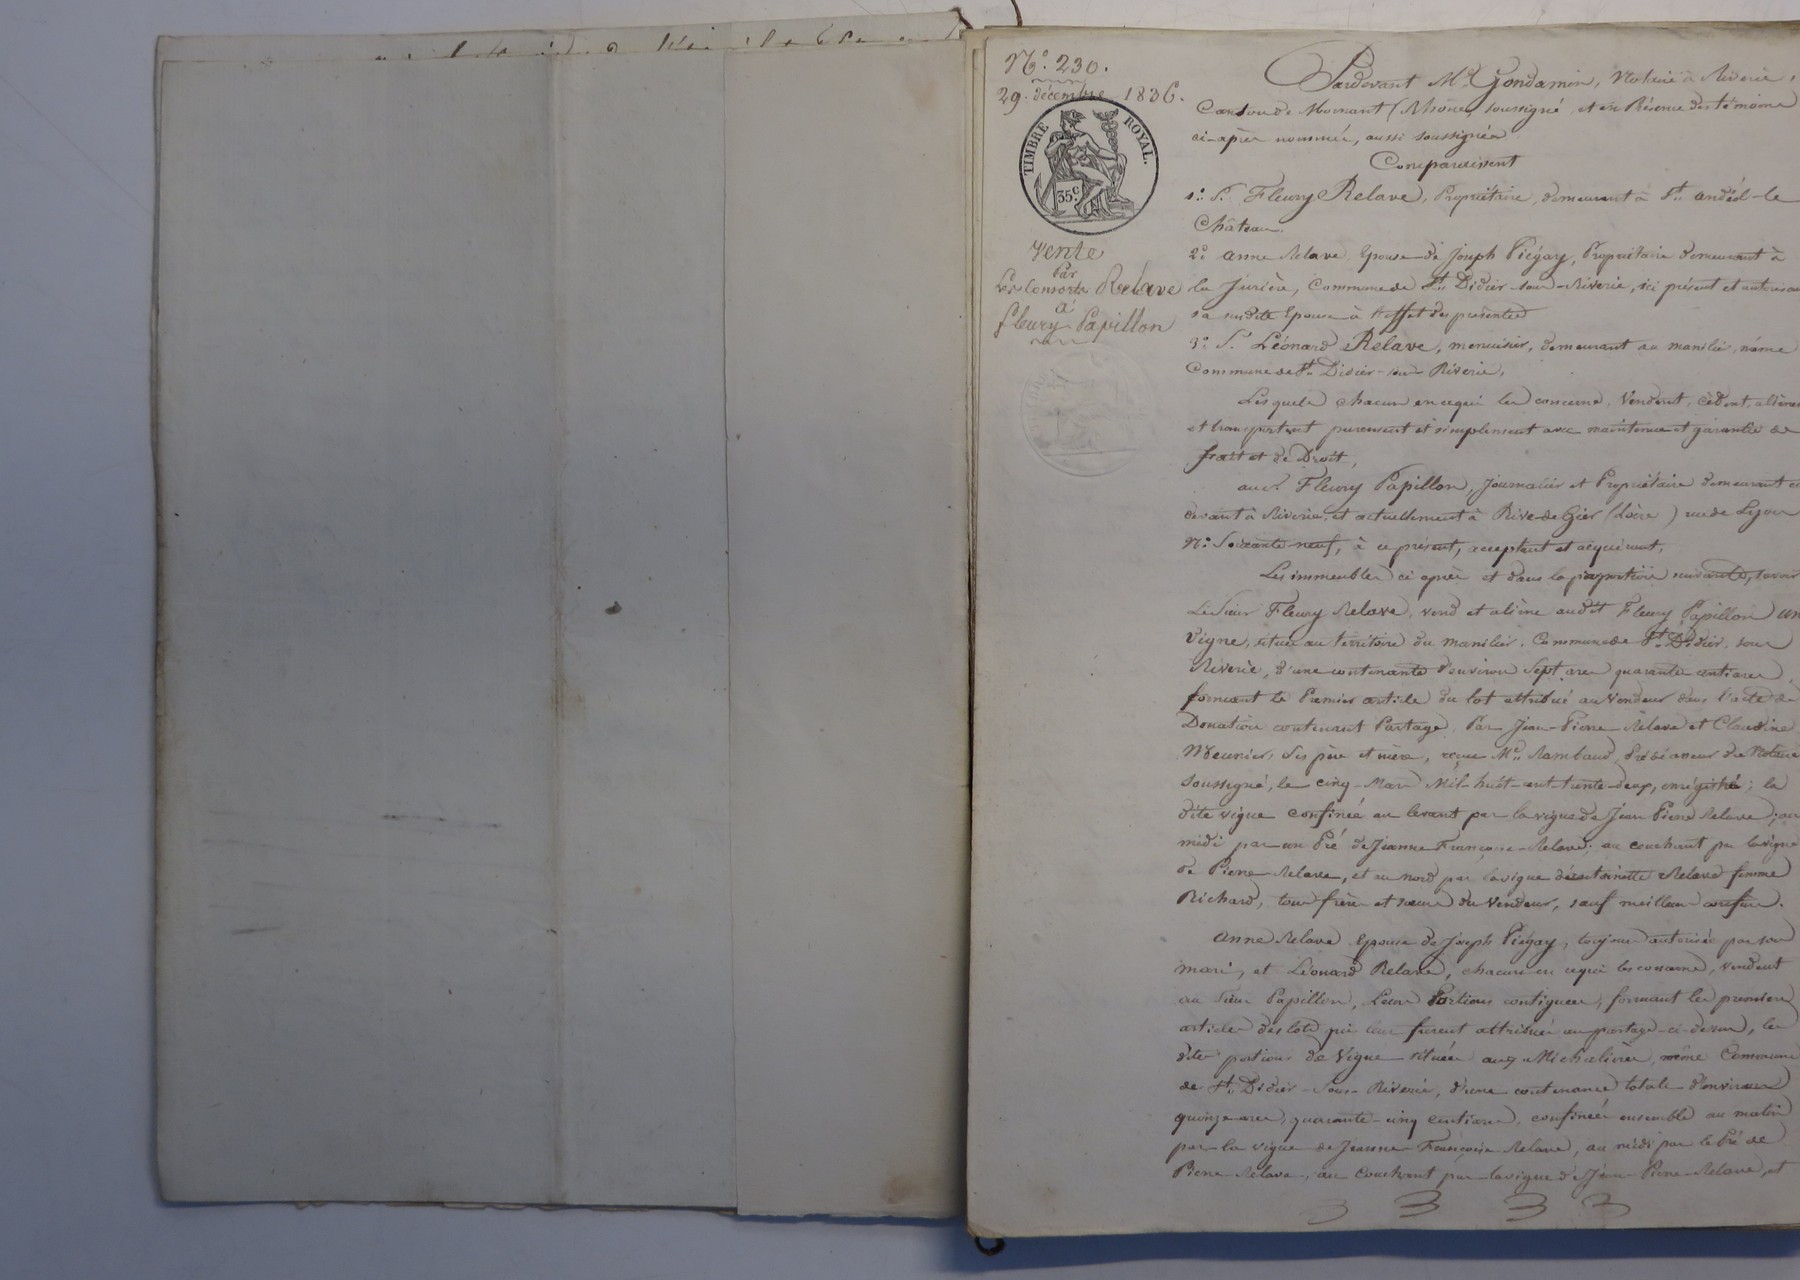 N.° 230.
29. décembre 1836.
TIMBRE ROYAL.
35.c
Vente
Par
Les Consorts Relave
à
fleury Papillon
Pardevant Me. Gondamin, Notaire à Riverie,
Canton de Mornant (Rhône) soussigné, et en Présence des témoins
ci-après nommés, aussi soussignés
Comparaissent
1.° S.r Fleury Relave, Propriétaire, demeurant à St. andéol-le
Château.
2.° anne Relave, Epouse de Joseph Piégay, Propriétaire demeurant à
la Jurière, Commune de St. Didier-sous-Riverie, ici présent et autorisant
sa susdite Epouse à l'effet des présentes
3.° S.r Léonard Relave, menuisier, demeurant au manilier, même
Commune de St. Didier-sous-Riverie,
Lesquels chacun en ce qui les concerne, Vendent, cèdent, aliènent
et transportent purement et simplement avec maintenue et garantie de
fait et de Droit,
au S.r Fleury Papillon, Journalier et Propriétaire demeurant ci
devant à Riverie, et actuellement à Rive-de-Gier (Loire) rue de Lyon
N.° Soixante-neuf, à ce présent, acceptant et acquérant,
Les immeubles ci après et dans la proportion suivante, savoir
Le Sieur Fleury Relave, vend et aliène audit Fleury Papillon une
Vigne, située au territoire du manilier, Commune de St. Didier-sous
Riverie, d'une contenante d'environ Sept ares quarante centiares
formant le Premier article du lot attribué au Vendeur dans l'acte de
Donation contenant Partage Par Jean-Pierre Relave et Claudine
Meunier, Ses père et mère, reçue Me. Rambaud, Prédécesseur du Notaire
soussigné, le cinq Mars Mil-huit-cent-trente-deux, enrégistré; la
dite vigne confinée au levant par la vigne de Jean Pierre Relave; au
midi par un Pré de Jeanne Françoise Relave; au couchant par la vigne
de Pierre Relave, et au nord par la vigne d'antoinette Relave femme
Richard, tous frères et sœurs du Vendeur, sauf meilleurs confins.
Anne Relave Epouse de Joseph Piégay, toujours autorisée par son
mari, et Léonard Relave, chacun en ce qui les concerne, vendent
au Sieur Papillon, Leurs Portions contigues, formant les premiers
articles des lots qui leur furent attribués au partage ci-dessus, les
dites portions de Vigne située aux Michalières, même Commune
de St. Didier-Sous-Riverie, d'une contenance totale d'environ
quinze ares, quarante-cinq centiares, confinées ensemble au matin
par la vigne de Jeanne Françoise Relave, au midi par le Pré de
Pierre Relave, au couchant par la vigne de Jean Pierre Relave, et